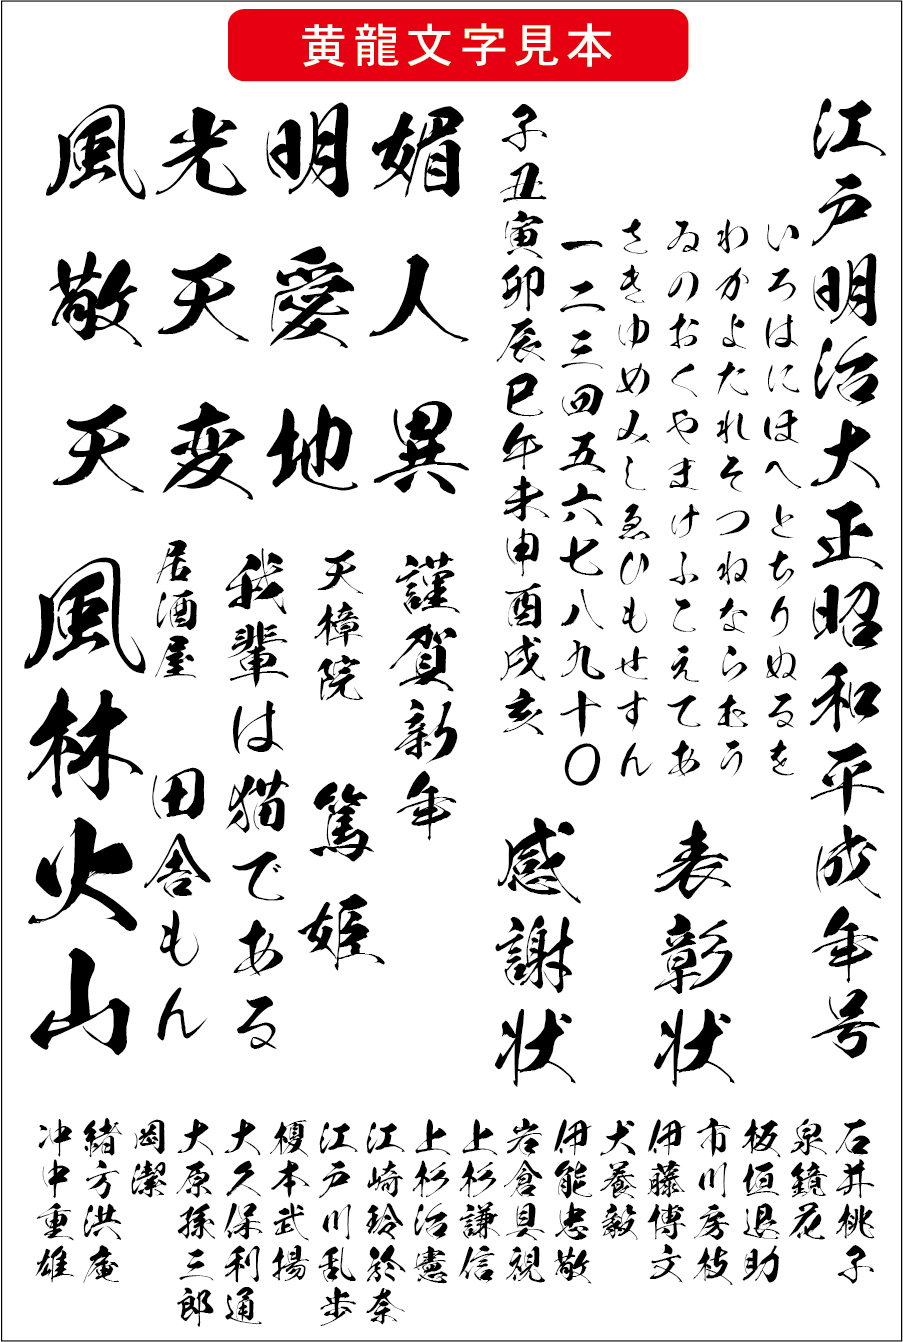 黄龍文字見本
江戸明治大正昭和平成年号
いろはにほへとちりぬるを
わかよたれそつねならむう
ゐのおくやまけふこえてあ
さきゆめみしゑひもせすん
一二三四五六七八九十〇
子丑寅卯辰巳午未申酉戌亥
表彰状
感謝状
風光明媚
敬天愛人
天変地異
謹賀新年
天樟院 篤姫
我輩は猫である
居酒屋 田舎もん
風林火山
石井桃子
泉鏡花
板垣退助
市川房枝
伊藤博文
犬養毅
伊能忠敬
岩倉具視
上杉謙信
上杉治憲
江崎玲於奈
江戸川乱歩
榎本武揚
大久保利通
大原孫三郎
岡潔
緒方洪庵
沖中重雄